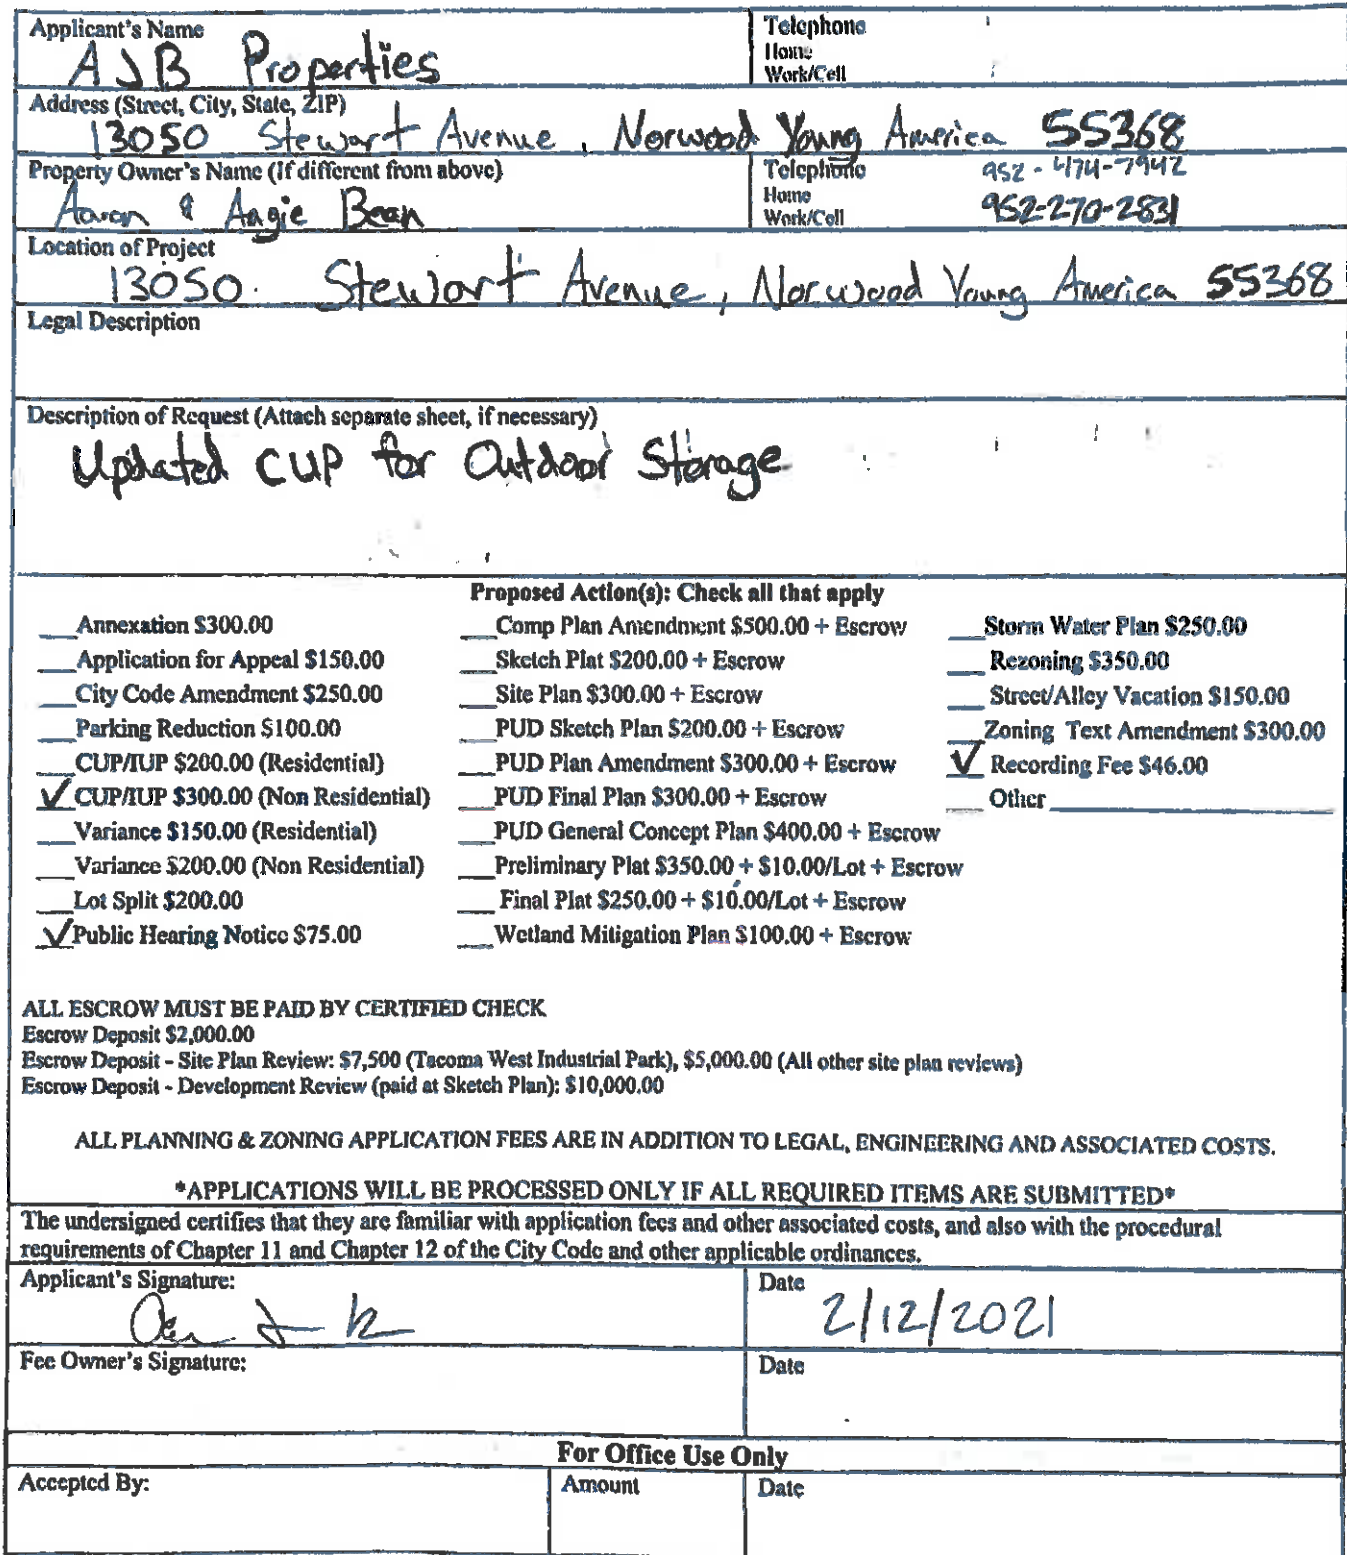 Applicant's Name
AJB Properties
Telephone
Home
Work/Cell
Address (Street, City, State, ZIP)
13050 Stewart Avenue, Norwood Young America 55368
Property Owner's Name (If different from above)
Aaron & Angie Bean
Telephone 952-474-7942
Home
Work/Cell 952-270-2831
Location of Project
13050. Stewart Avenue, Norwood Young America 55368
Legal Description
Description of Request (Attach separate sheet, if necessary)
Updated CUP for Outdoor Storage
Proposed Action(s): Check all that apply
___Annexation $300.00
___Application for Appeal $150.00
___City Code Amendment $250.00
___Parking Reduction $100.00
___CUP/IUP $200.00 (Residential)
✓CUP/IUP $300.00 (Non Residential)
___Variance $150.00 (Residential)
___Variance $200.00 (Non Residential)
___Lot Split $200.00
✓Public Hearing Notice $75.00
___Comp Plan Amendment $500.00 + Escrow
___Sketch Plat $200.00 + Escrow
___Site Plan $300.00 + Escrow
___PUD Sketch Plan $200.00 + Escrow
___PUD Plan Amendment $300.00 + Escrow
___PUD Final Plan $300.00 + Escrow
___PUD General Concept Plan $400.00 + Escrow
___Preliminary Plat $350.00 + $10.00/Lot + Escrow
___Final Plat $250.00 + $10.00/Lot + Escrow
___Wetland Mitigation Plan $100.00 + Escrow
___Storm Water Plan $250.00
___Rezoning $350.00
___Street/Alley Vacation $150.00
___Zoning Text Amendment $300.00
✓ Recording Fee $46.00
___ Other ____________________
ALL ESCROW MUST BE PAID BY CERTIFIED CHECK
Escrow Deposit $2,000.00
Escrow Deposit - Site Plan Review: $7,500 (Tacoma West Industrial Park), $5,000.00 (All other site plan reviews)
Escrow Deposit - Development Review (paid at Sketch Plan): $10,000.00
ALL PLANNING & ZONING APPLICATION FEES ARE IN ADDITION TO LEGAL, ENGINEERING AND ASSOCIATED COSTS.
*APPLICATIONS WILL BE PROCESSED ONLY IF ALL REQUIRED ITEMS ARE SUBMITTED*
The undersigned certifies that they are familiar with application fees and other associated costs, and also with the procedural
requirements of Chapter 11 and Chapter 12 of the City Code and other applicable ordinances.
Applicant's Signature:
Date
2/12/2021
Fee Owner's Signature:
Date
For Office Use Only
Accepted By:
Amount
Date